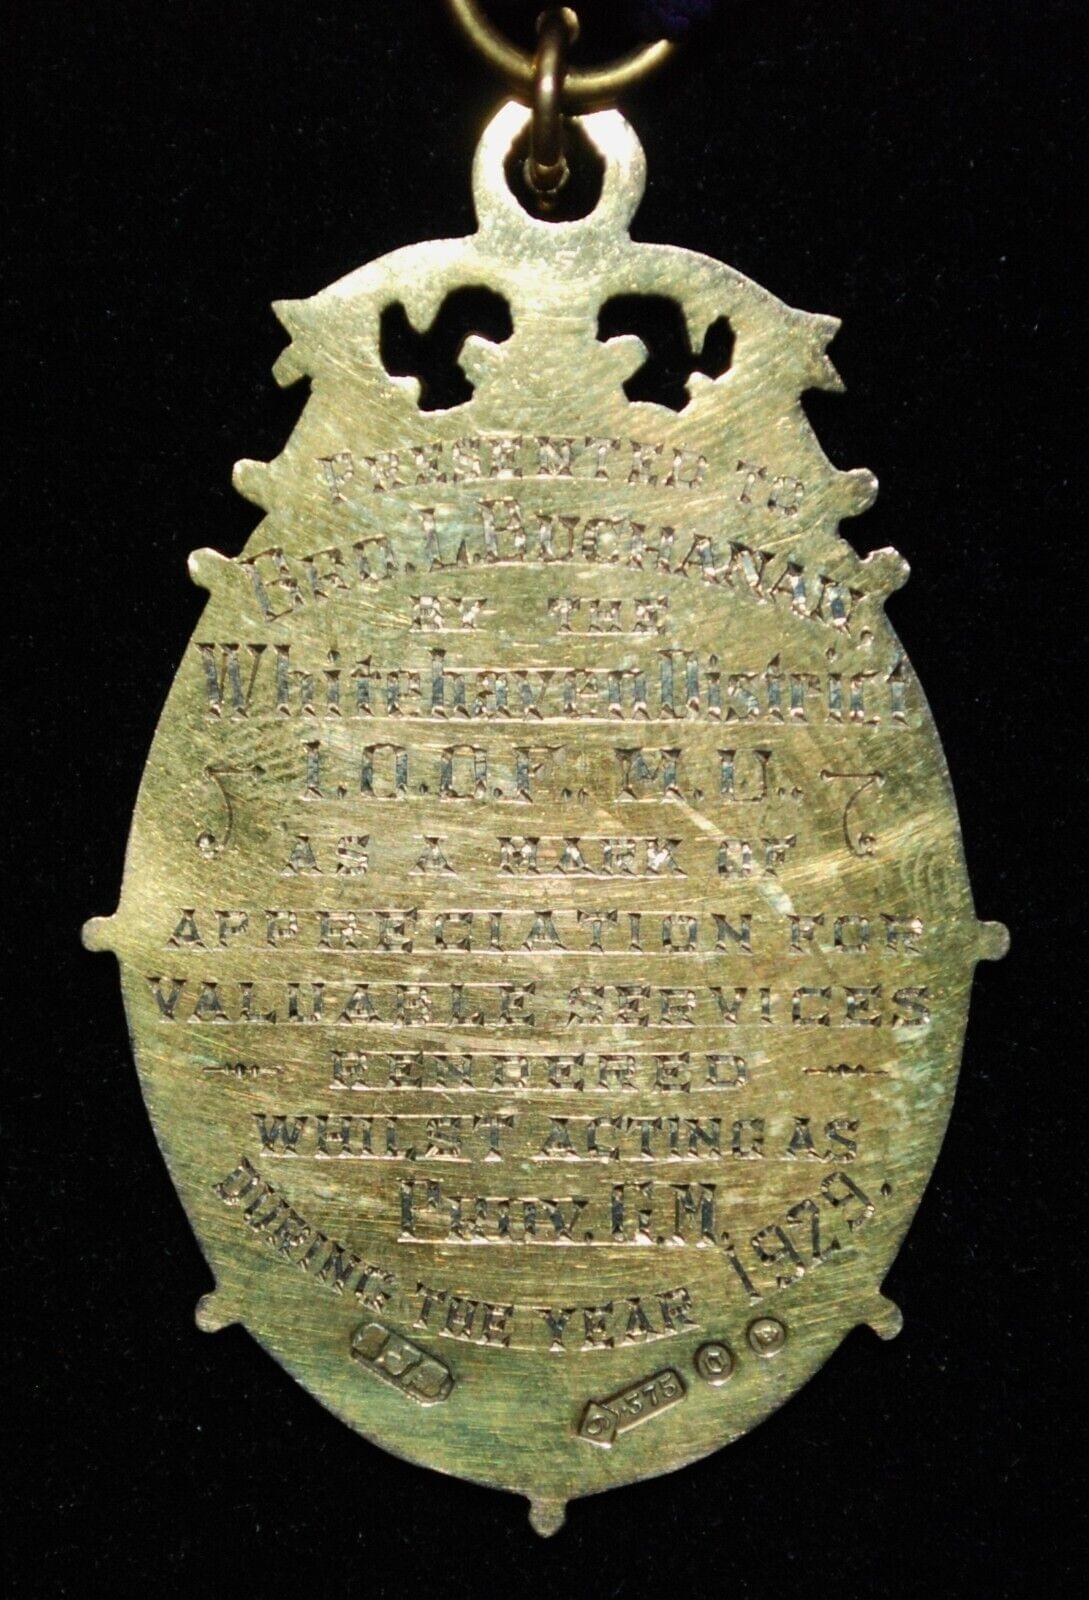 PRESENTED TO
BRO. L. BUCHANAN,
BY THE
Whitehaven District
I.O.O.F., M.U.,
AS A MARK OF
APPRECIATION FOR
VALUABLE SERVICES
RENDERED
WHILST ACTING AS
Prov. G.M.
DURING THE YEAR 1929.
9 .375